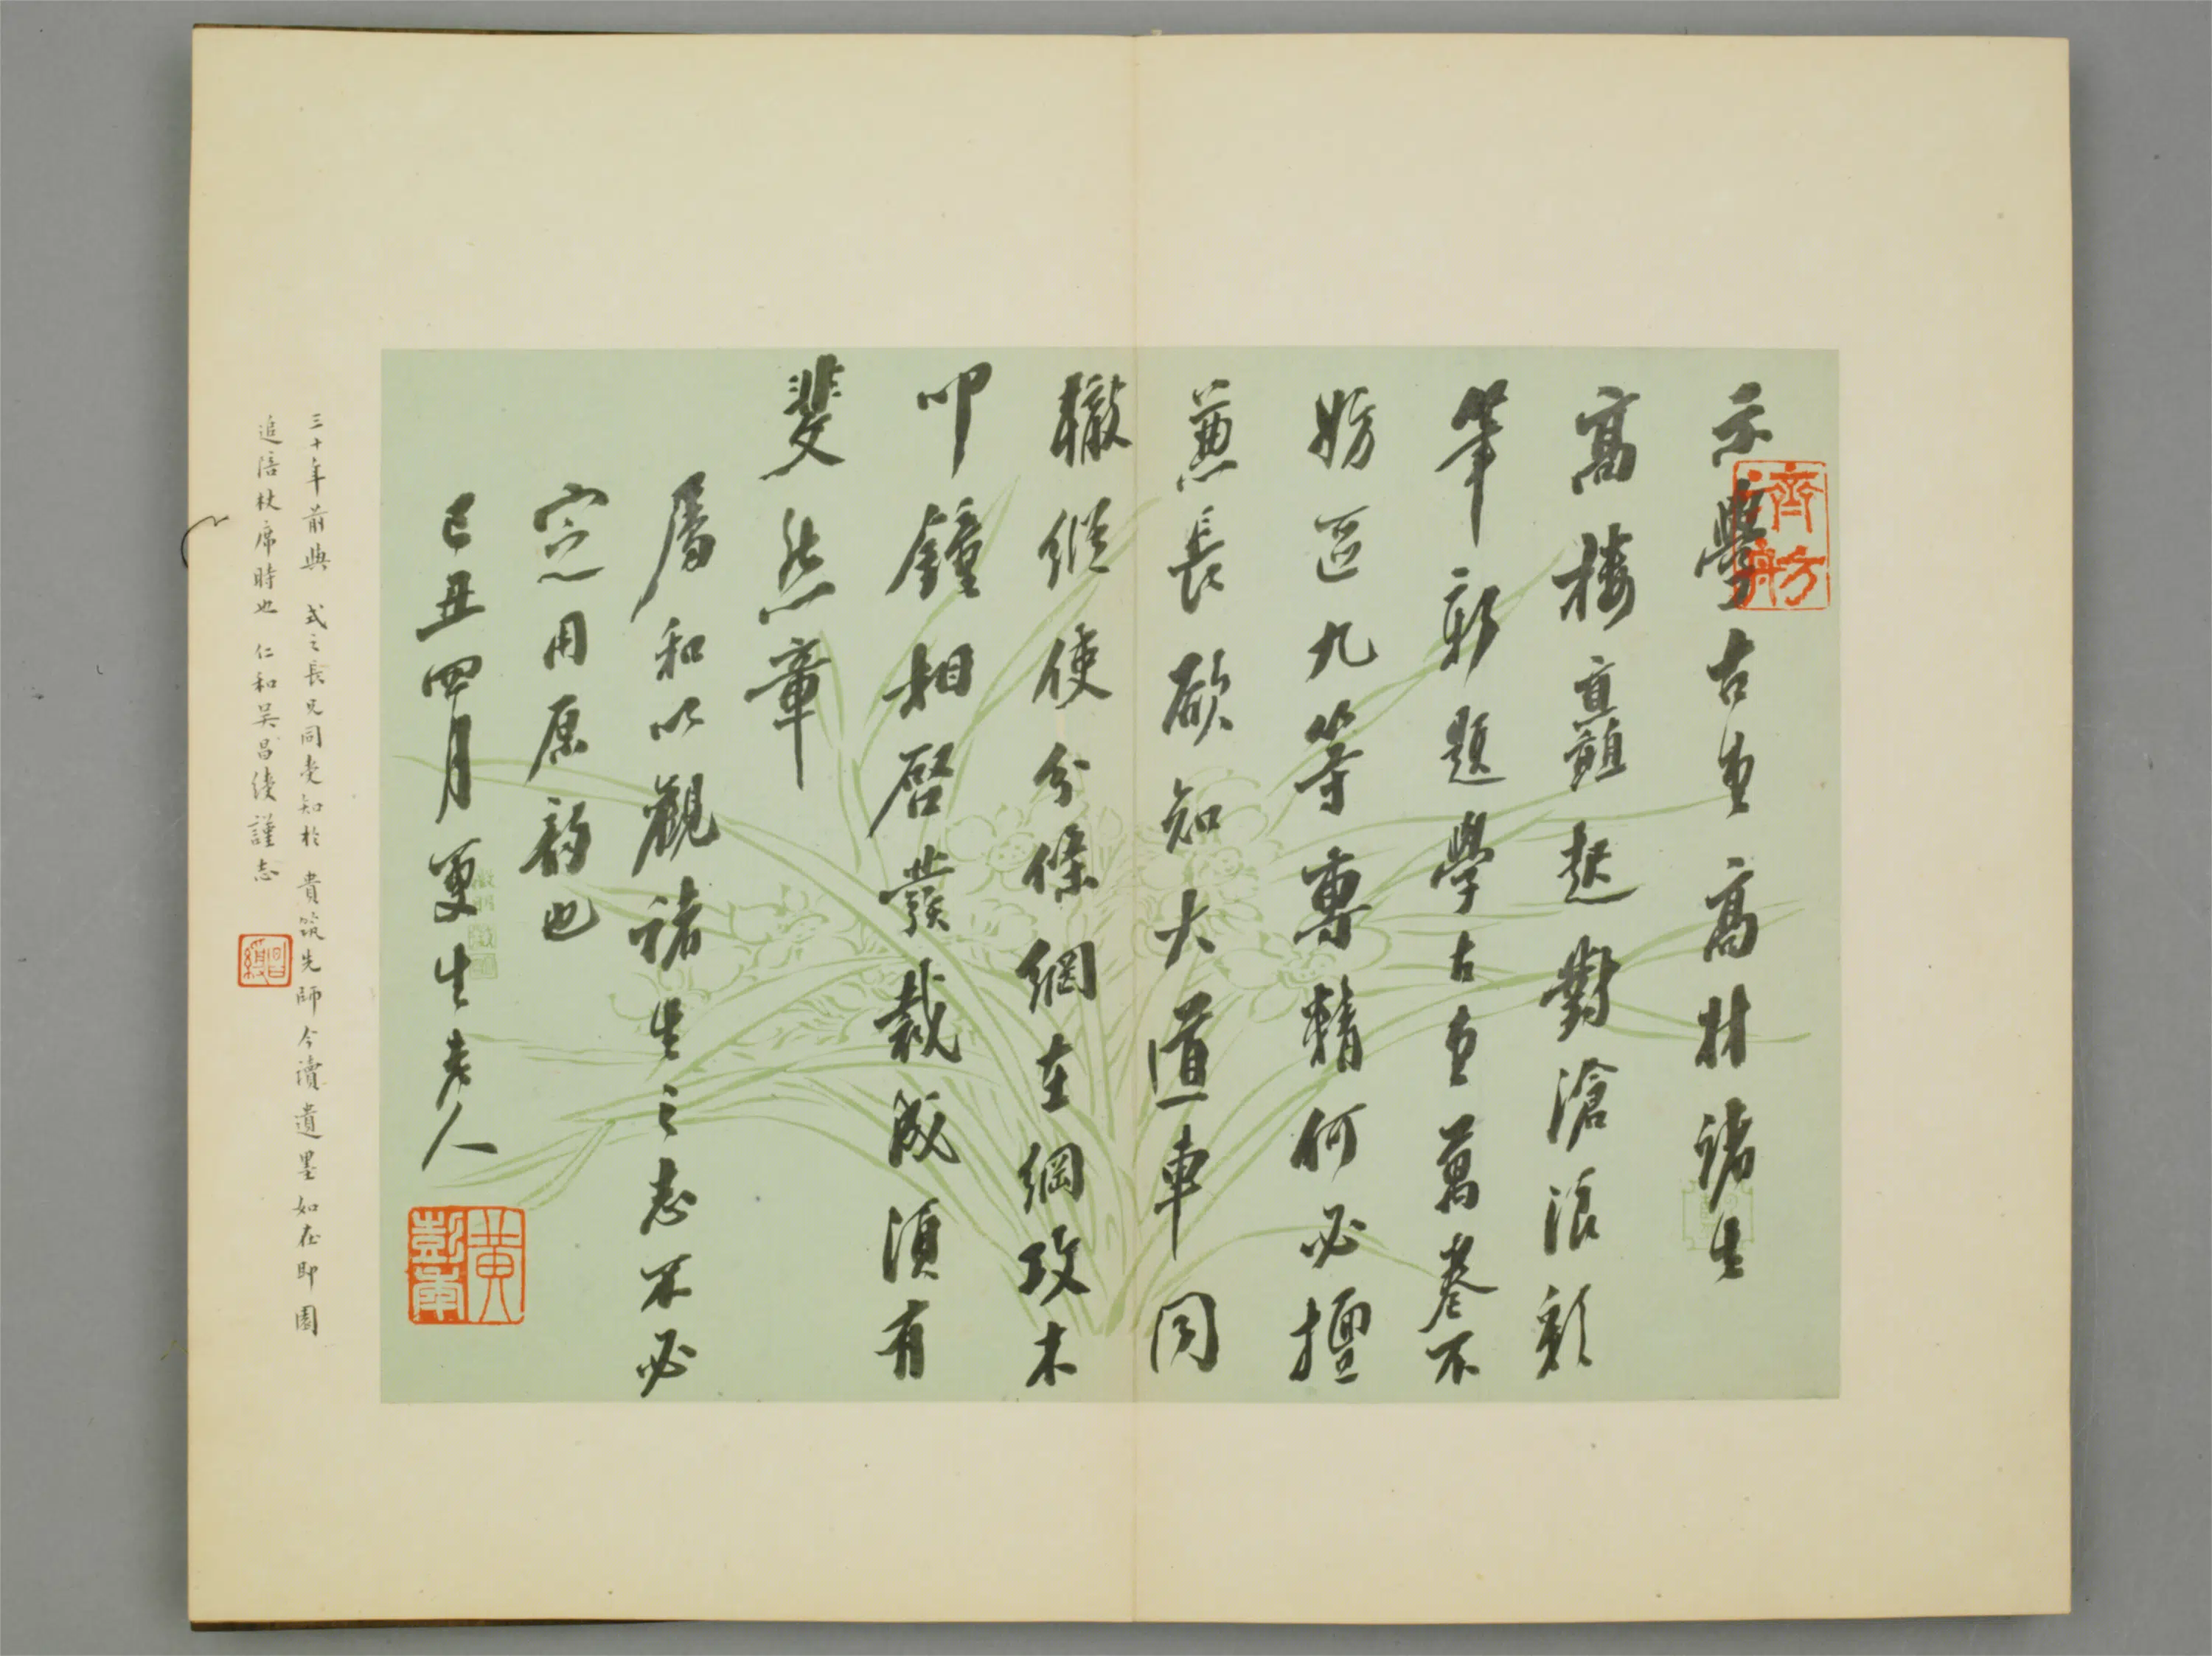 示學古堂高材諸生
高樓直矗起對滄浪彩
筆新題學古堂萬卷不
妨區九等專精何必擅
兼長欲知大道車同
轍縱使分條綱在綱攻木
叩鐘相啓發裁成須有
斐然章
屬和以觀諸生之志不必
定用原韵也
己丑四月更生老人
三十年前與 式之長兄同受知於 貴筑先師今讀遺墨如在即園
追陪杖席時也 仁和吳昌綬謹志
黃彭年
昌綬